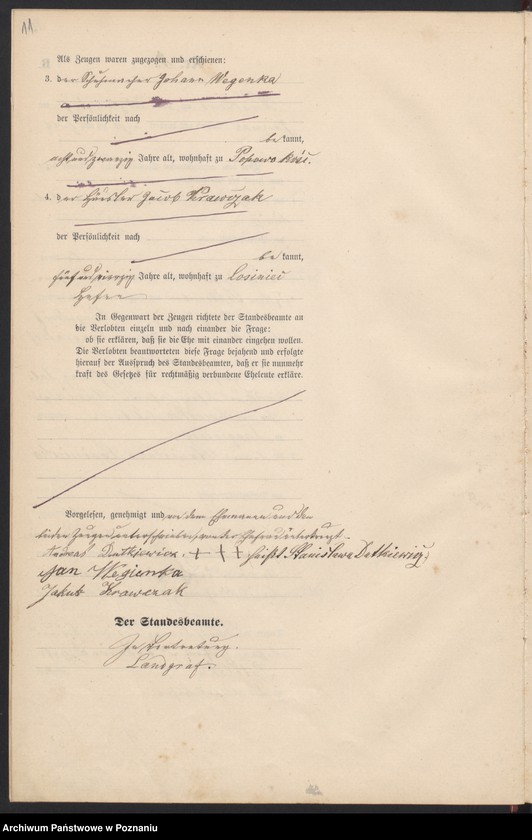 11.
Als Zeugen waren zugezogen und erschienen:
3. der Schuhmacher Johann Wegenka
der Persönlichkeit nach
be kannt,
achtundzwanzig Jahre alt, wohnhaft zu Popowo kośc.
4. der Häusler Jacob Krawczak
der Persönlichkeit nach
be kannt,
fünfundvierzig Jahre alt, wohnhaft zu Losiniec
In Gegenwart der Zeugen richtete der Standesbeamte an
die Verlobten einzeln und nach einander die Frage:
ob sie erklären, daß sie die Ehe mit einander eingehen wollen.
Die Verlobten beantworteten diese Frage bejahend und erfolgte
hierauf der Ausspruch des Standesbeamten, daß er sie nunmehr
kraft des Gesetzes für rechtmäßig verbundene Eheleute erkläre.
Vorgelesen, genehmigt und von dem Ehemanne und den
beiden Zeugen unterschrieben, von der Ehefrau
Dutkiewicz, + + + heißt Stanisława Dutkiewicz
Jan Wegienka
Jakub Krawczak
Der Standesbeamte.
In Vertretung.
Landgraf.
Archiwum Państwowe w Poznaniu